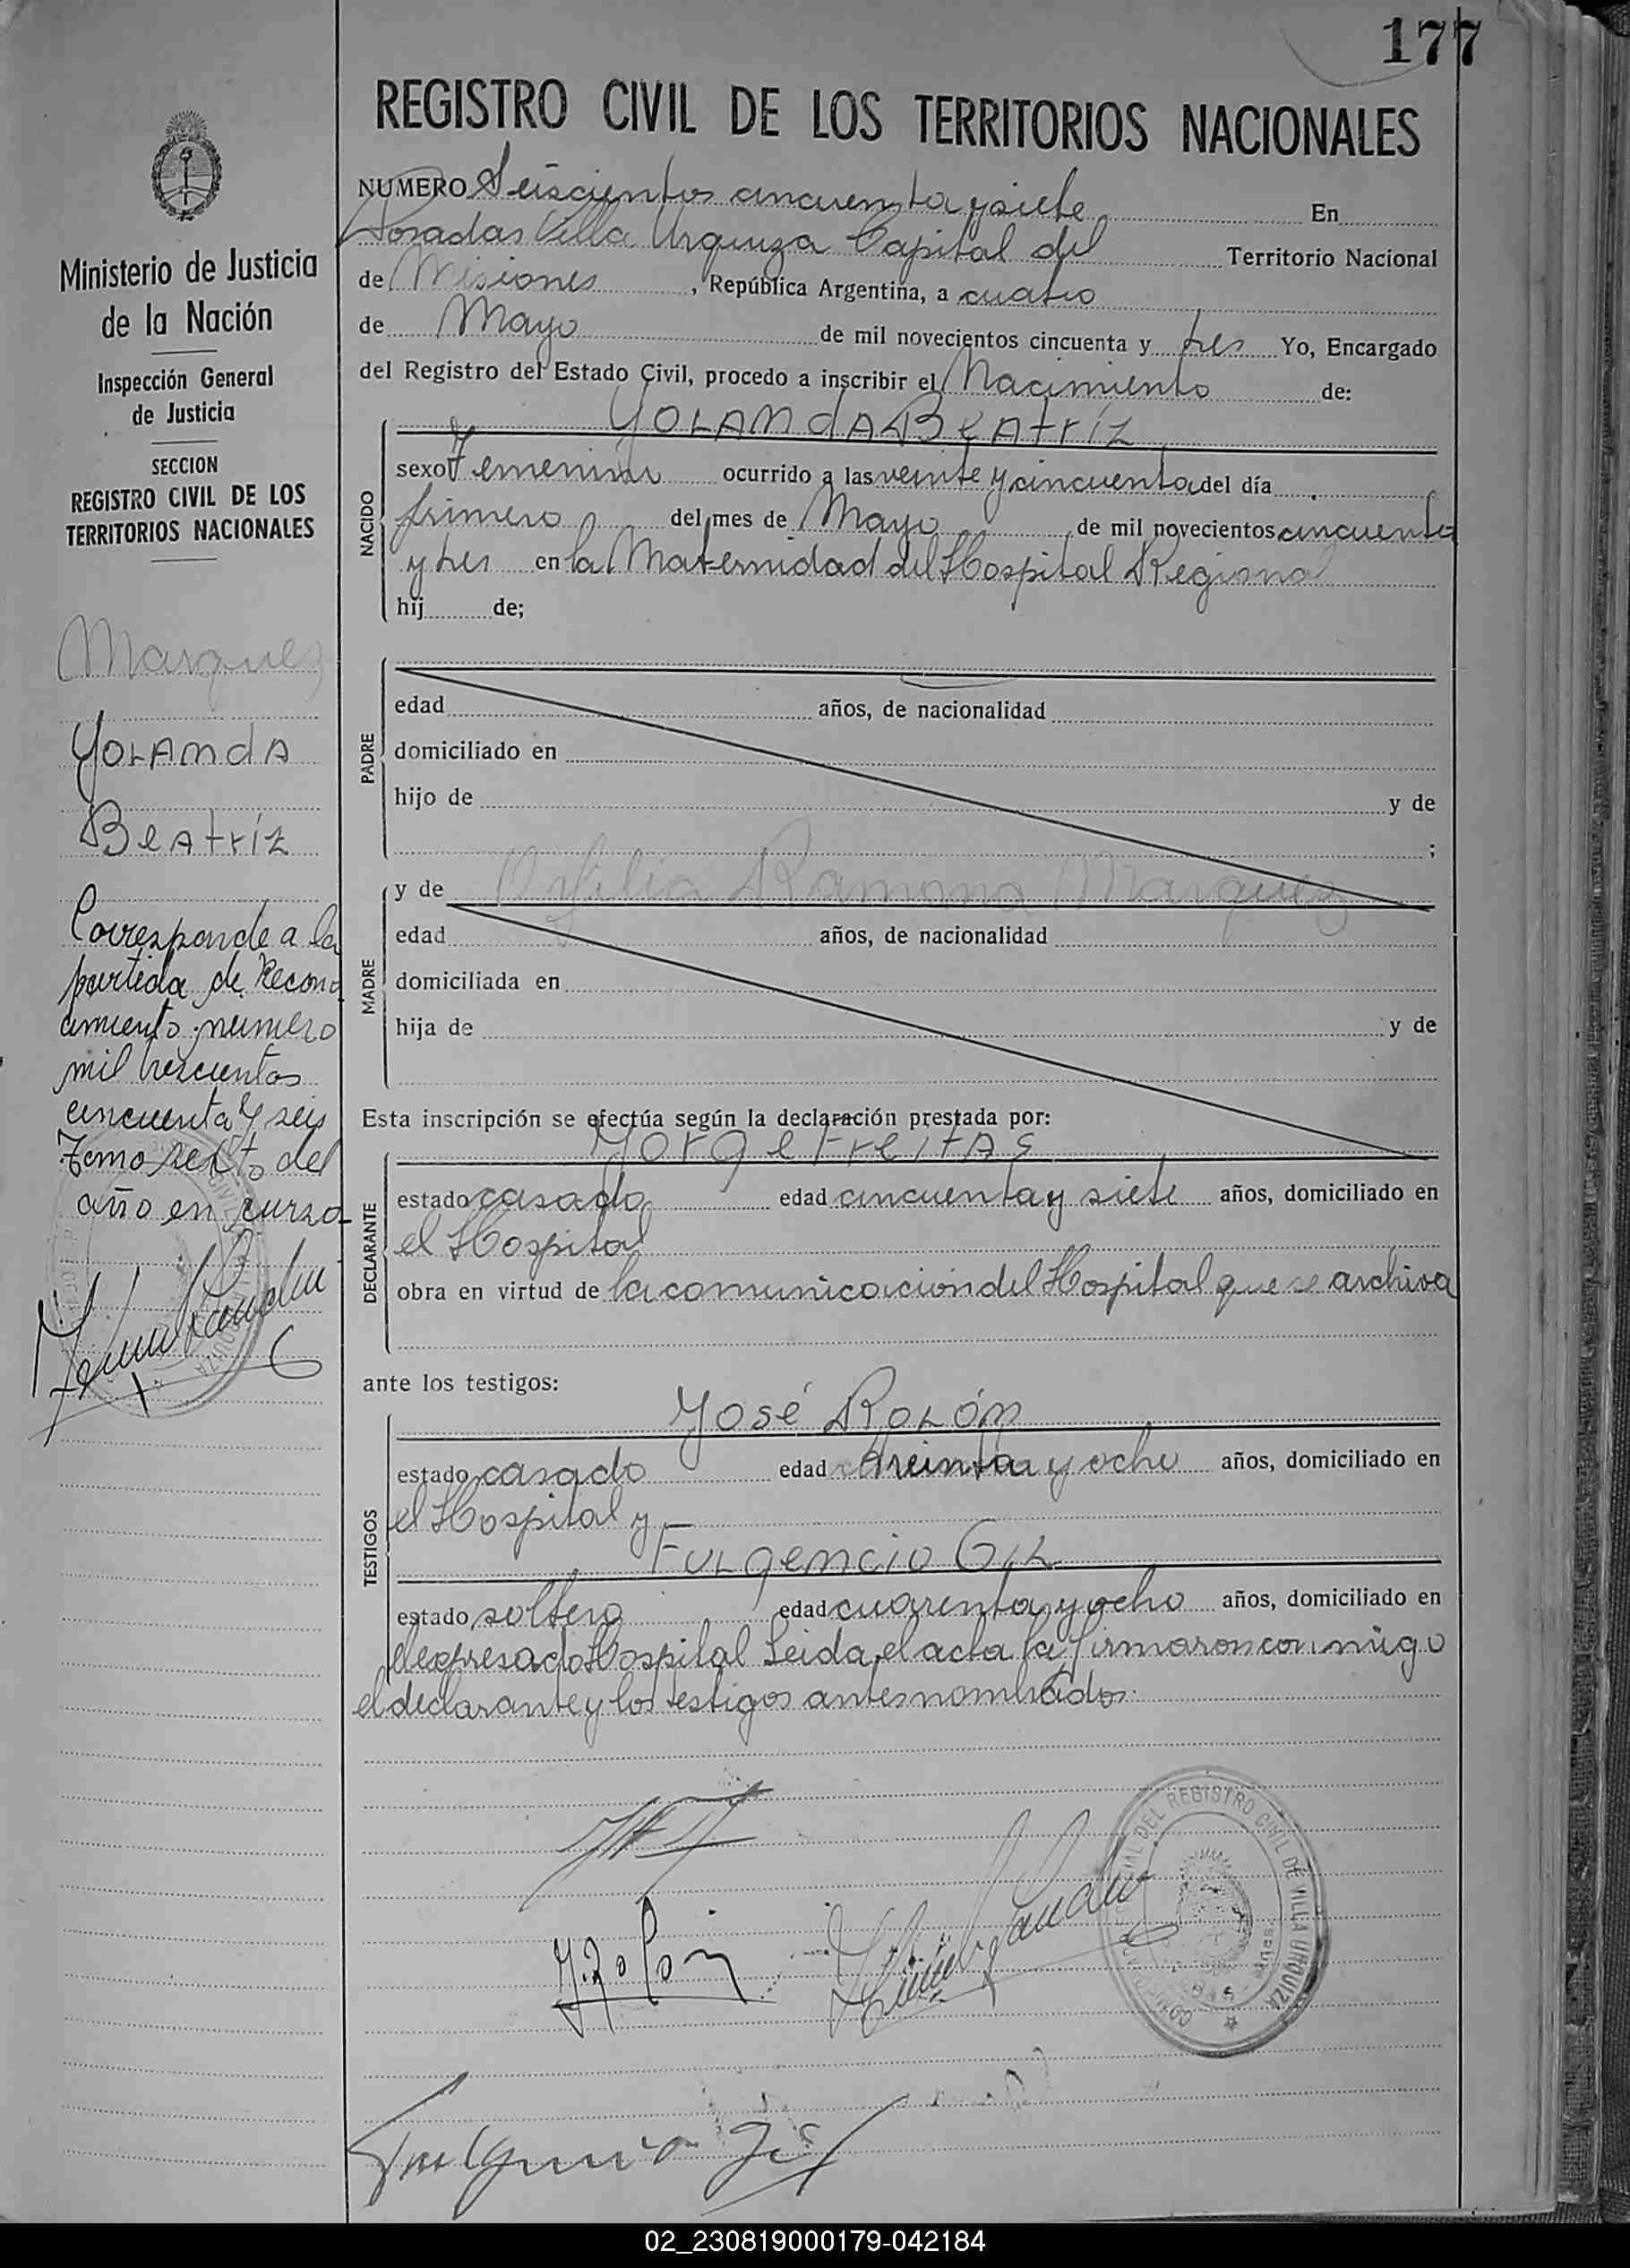 177
REGISTRO CIVIL DE LOS TERRITORIOS NACIONALES
NUMERO Seiscientos cincuenta y siete En
Posadas Villa Urquiza Capital del Territorio Nacional
de Misiones, República Argentina, a cuatro
de Mayo de mil novecientos cincuenta y tres Yo, Encargado
del Registro del Estado Civil, procedo a inscribir el Nacimiento de:
Yolanda Beatríz
NACIDO
sexo Femenino ocurrido a las veinte y cincuenta del día
primero del mes de Mayo de mil novecientos cincuenta
y tres en la Maternidad del Hospital Regional
hij de;
PADRE
edad años, de nacionalidad
domiciliado en
hijo de y de
;
MADRE
y de Ramona Marquez
edad años, de nacionalidad
domiciliada en
hija de y de
Esta inscripción se efectúa según la declaración prestada por:
Jorge Freitas
DECLARANTE
estado casado edad cincuenta y siete años, domiciliado en
el Hospital
obra en virtud de la comunicación del Hospital que se archiva
ante los testigos:
José Rolón
TESTIGOS
estado casado edad treinta y ocho años, domiciliado en
el Hospital y
Fulgencio Gil
estado soltero edad cuarenta y ocho años, domiciliado en
el expresado Hospital Leida el acta la firmaron conmigo
el declarante y los testigos antes nombrados.
J. Rolón
DEL REGISTRO CIVIL DE VILLA URQUIZA
Fulgencio Gil
Ministerio de Justicia
de la Nación
Inspección General
de Justicia
SECCION
REGISTRO CIVIL DE LOS
TERRITORIOS NACIONALES
Marquez
Yolanda
Beatríz
Corresponde a la
partida de Recono
cimiento número
mil trescientos
cincuenta y seis
Tomo sexto del
año en curso
02_230819000179-042184